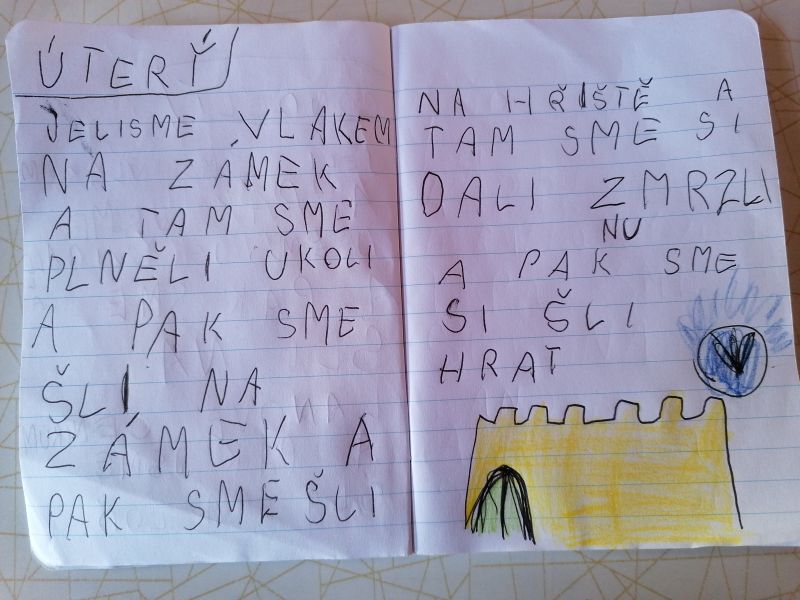 ÚTERÝ
JELISME VLAKEM
NA ZÁMEK
A TAM SME
PLNĚLI UKOLI
A PAK SME
ŠLI NA
ZÁMEK A
PAK SME ŠLI
NA HŘIŠTĚ A
TAM SME SI
DALI ZMRZLI
NU
A PAK SME
SI ŠLI
HRAT